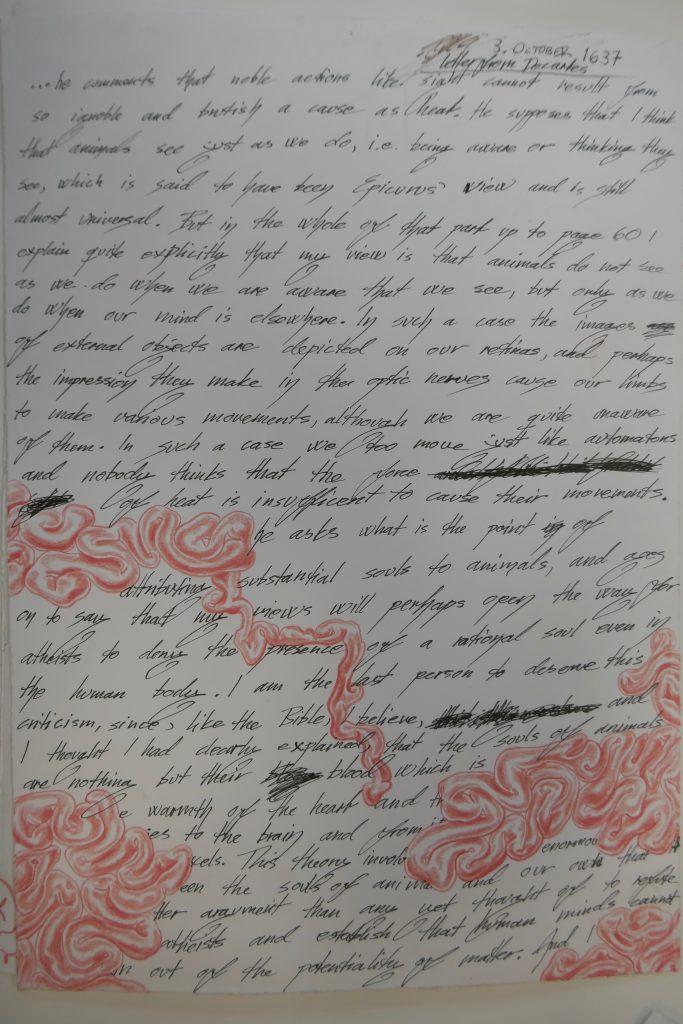 3. October 1637
letter from Decartes
...he comments that noble actions like sight cannot result from
so ignoble and brutish a cause as heat. He supposes that I think
that animals see just as we do, i.e. being aware or thinking they
see, which is said to have been Epicurus' view and is still
almost universal. But in the whole of that part up to page 60 I
explain quite explicitly that my view is that animals do not see
as we do when we are aware that we see, but only as we
do when our mind is elsewhere. In such a case the images
of external objects are depicted on our retinas, and perhaps
the impression they make in the optic nerves cause our limbs
to make various movements, although we are quite unaware
of them. In such a case we too move just like automatons
and nobody thinks that the force
of heat is insufficent to cause their movements.
he asks what is the point of
attributing substantial souls to animals, and goes
on to say that my views will perhaps open the way for
atheists to deny the presence of a rational soul even in
the human body. I am the last person to deserve this
criticism, since, like the Bible, I believe, and
I thought I had clearly explained, that the souls of animals
are nothing but their blood which is
e warmth of the heart and tr
ies to the brain and from it
This theory involv enormous
een the souls of anima and our own that
ther argument than any yet thought of to refute
atheists and establish that human minds cannot
out of the potentiality of matter. And I